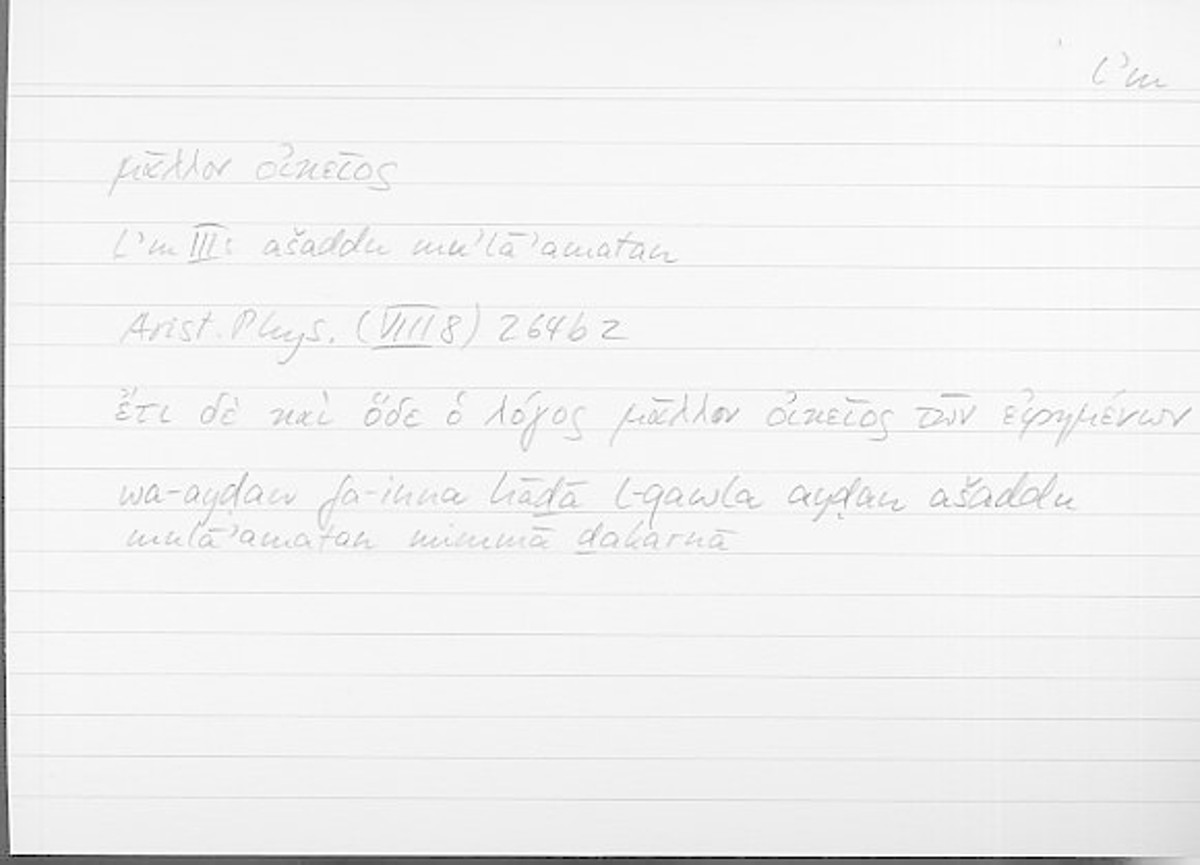 lʾm
μᾶλλον οἰκεῖος
lʾm III: ašaddu muʾlāʾamatan
Arist. Phys. (VIII 8) 264b2
ἔτι δὲ καὶ ὅδε ὁ λόγος μᾶλλον οἰκεῖος τῶν εἰρημένων
wa-ayḍan fa-inna hāḏā l-qawla ayḍan ašaddu
mulāʾamatan mimmā ḏakarnā